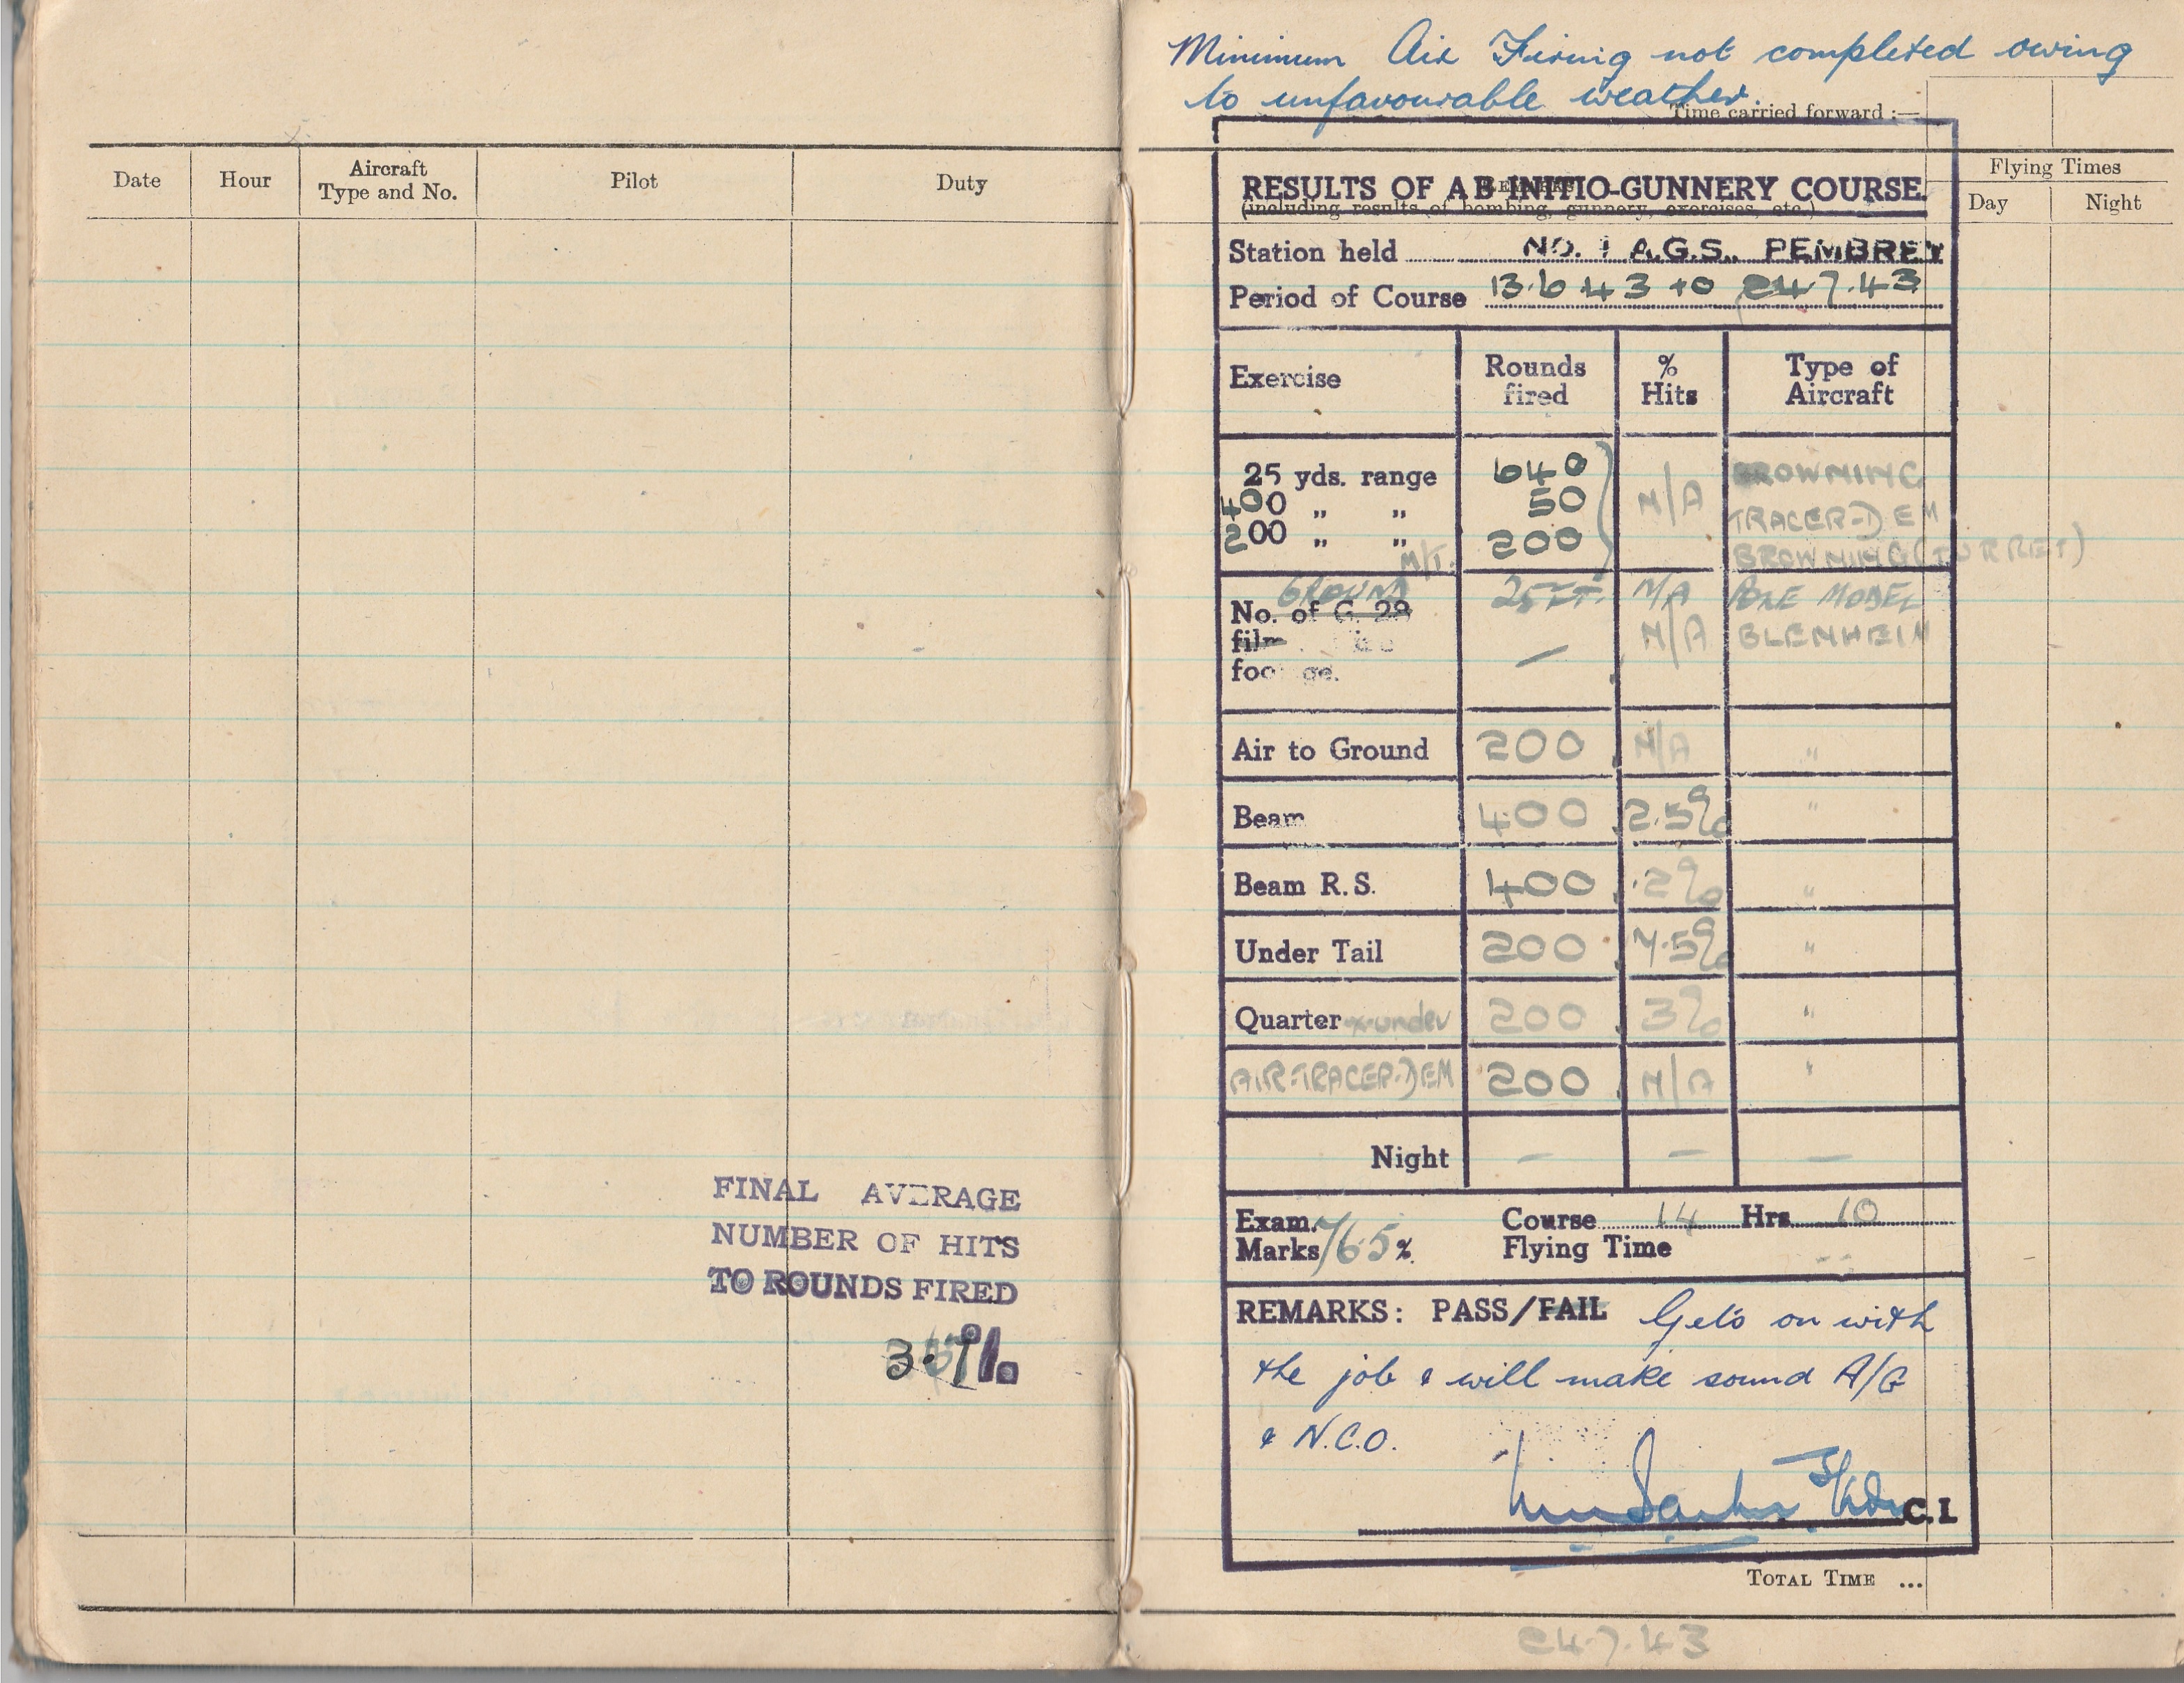 Date Hour Aircraft Type and No. Pilot Duty
FINAL AVERAGE
NUMBER OF HITS
TO ROUNDS FIRED
%
Minimum Air Firing not completed owing
to unfavourable weather.
Time carried forward :—
REMARKS
(including results of bombing, gunnery, exercises, etc.)
Flying Times
Day Night
RESULTS OF AB-INITIO-GUNNERY COURSE
Station held NO. 1 A.G.S. PEMBREY
Period of Course 13.6 43 to 24.7.43
Exercise Rounds fired % Hits Type of Aircraft
25 yds. range 640 N/A BROWNING
400 „ „ 50 TRACER-DEM
200 „ „ M/T. 200 BROWNING (TURRET)
GROUND 25 FT. N/A MODEL
No. of G. 29 N/A BLENHEIM
film
footage. —
Air to Ground 200 N/A "
Beam 400 2.5% "
Beam R.S. 400 .2% "
Under Tail 200 7.5% "
Quarter x-under 200 3% "
AIR-TRACER-DEM 200 N/A "
Night — — —
Exam. Marks 76.5% Course Flying Time 14 Hrs 10
REMARKS: PASS/FAIL Gets on with
the job & will make sound A/G
& N.C.O.
C.I.
TOTAL TIME ...
24.7.43